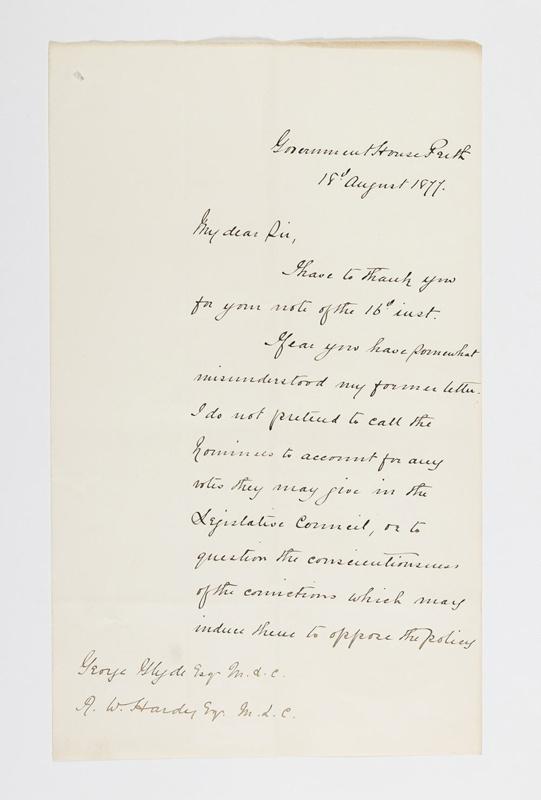 Government House Perth
18th August 1877.
My dear Sir,
I have to thank you
for your note of the 16th inst.
I fear you have somewhat
misunderstood my former letter.
I do not pretend to call the
Nominees to account for any
votes they may give in the
Legislative Council, or to
question the conscientiousness
of the convictions which may
induce them to oppose the policy
George Glyde Esqr M.L.C.
A. W. Hardey Esqr M.L.C.